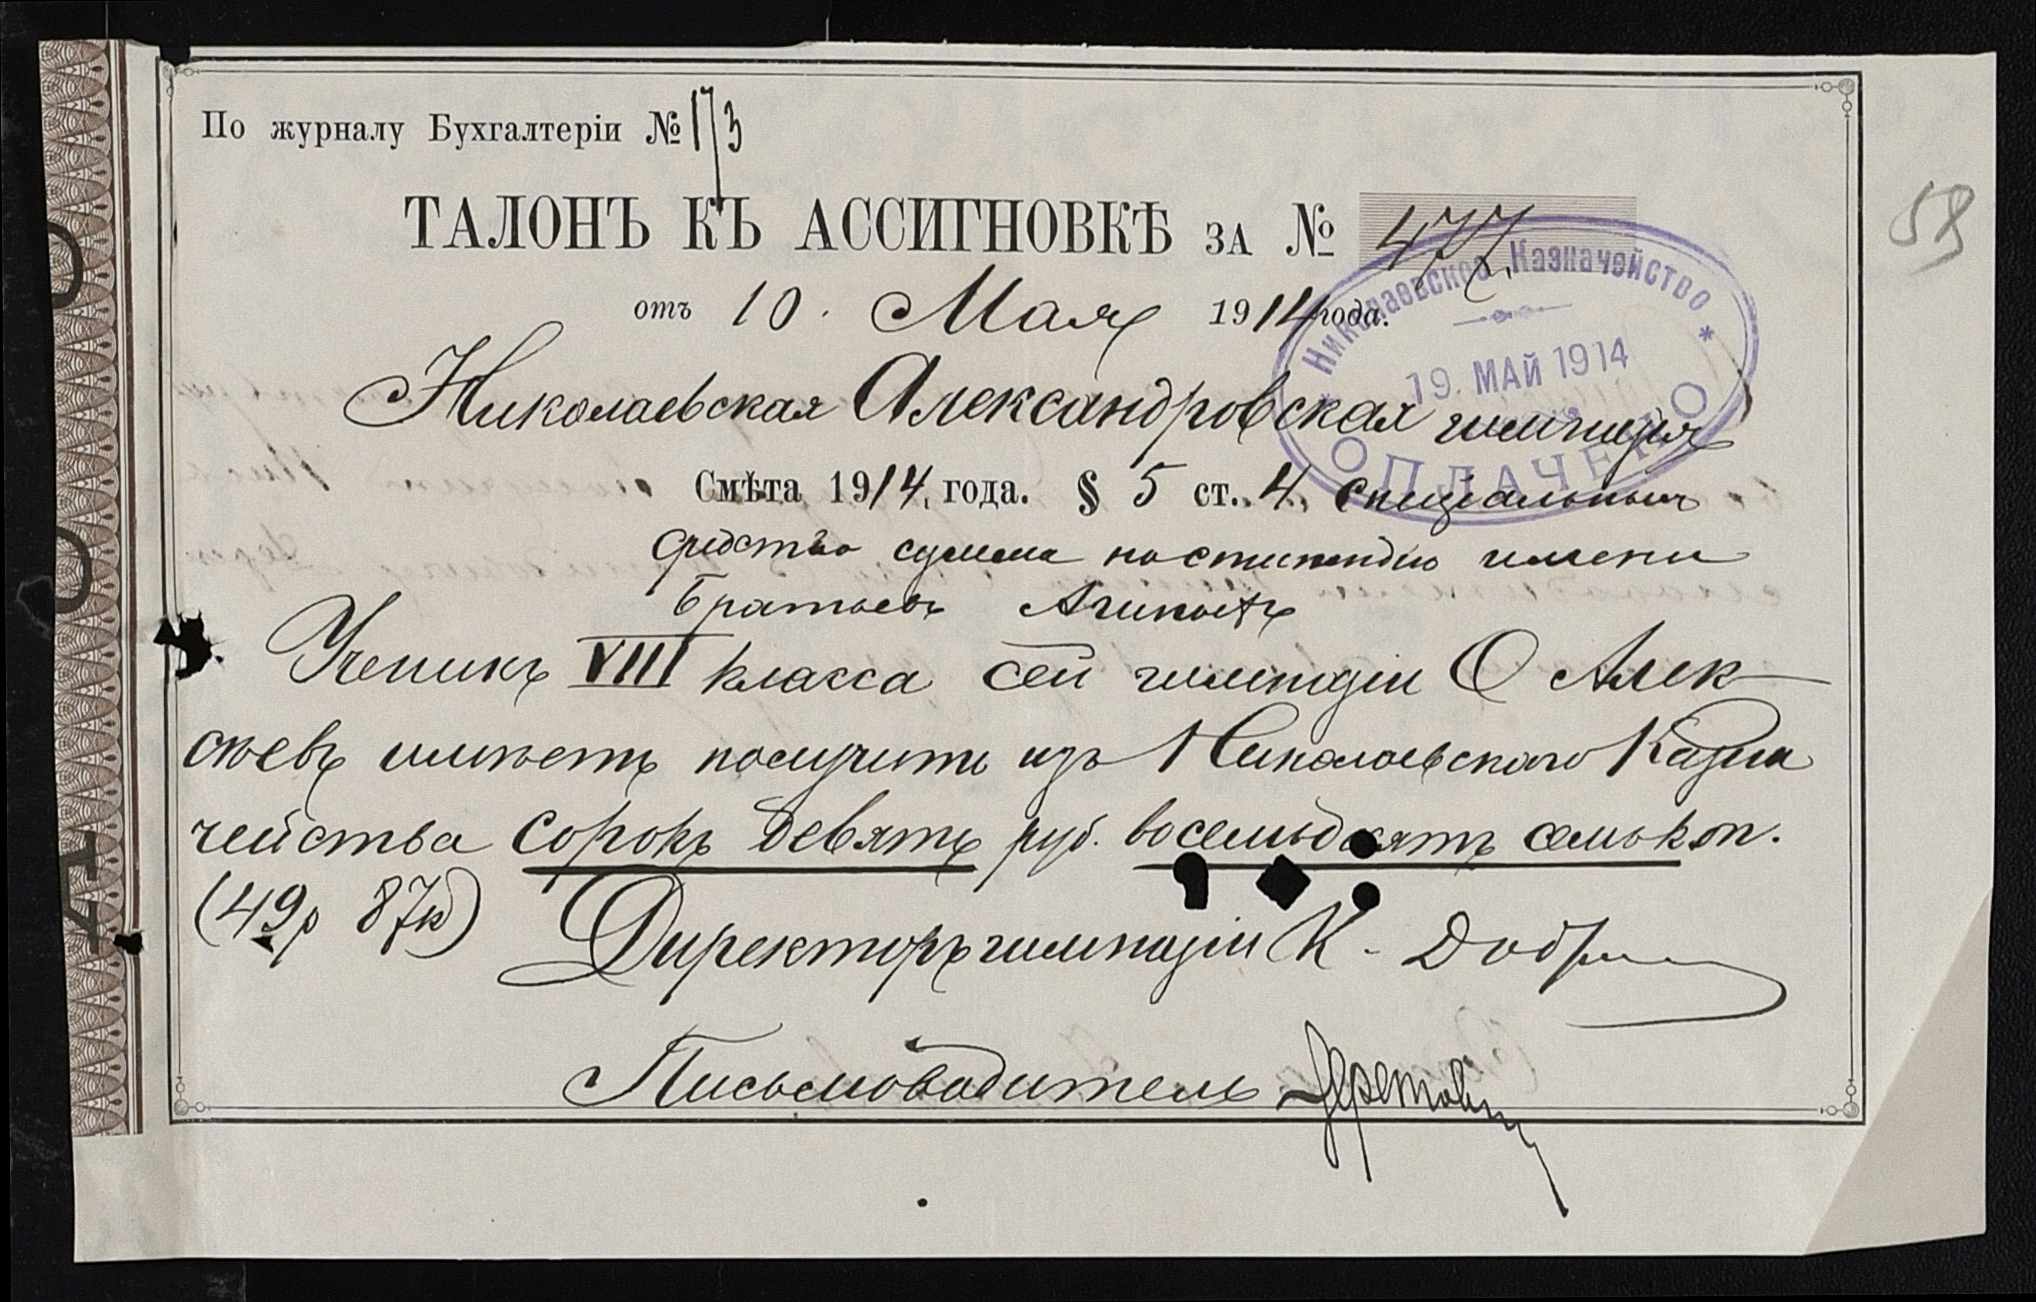 По журналу Бухгалтеріи № 173
ТАЛОНЪ КЪ АССИГНОВКѢ за № 477.
59
отъ 10. Мая 1914 года.
Николаевское Казначейство
19. МАЙ 1914
ОПЛАЧЕНО
Николаевская Александровская гимназія
Смѣта 1914, года. § 5 ст. 4 спеціальныхъ
средствъ сумма на стипендію имени
Братьевъ
Ученикъ VIII класса сей гимназіи О Алек-
сѣевъ имѣетъ получить изъ Николаевскаго Казна
чейства сорокъ девять руб. восемьдесятъ семь коп.
(49р 87к) Директоръ гимназіи К.
Письмоводитель